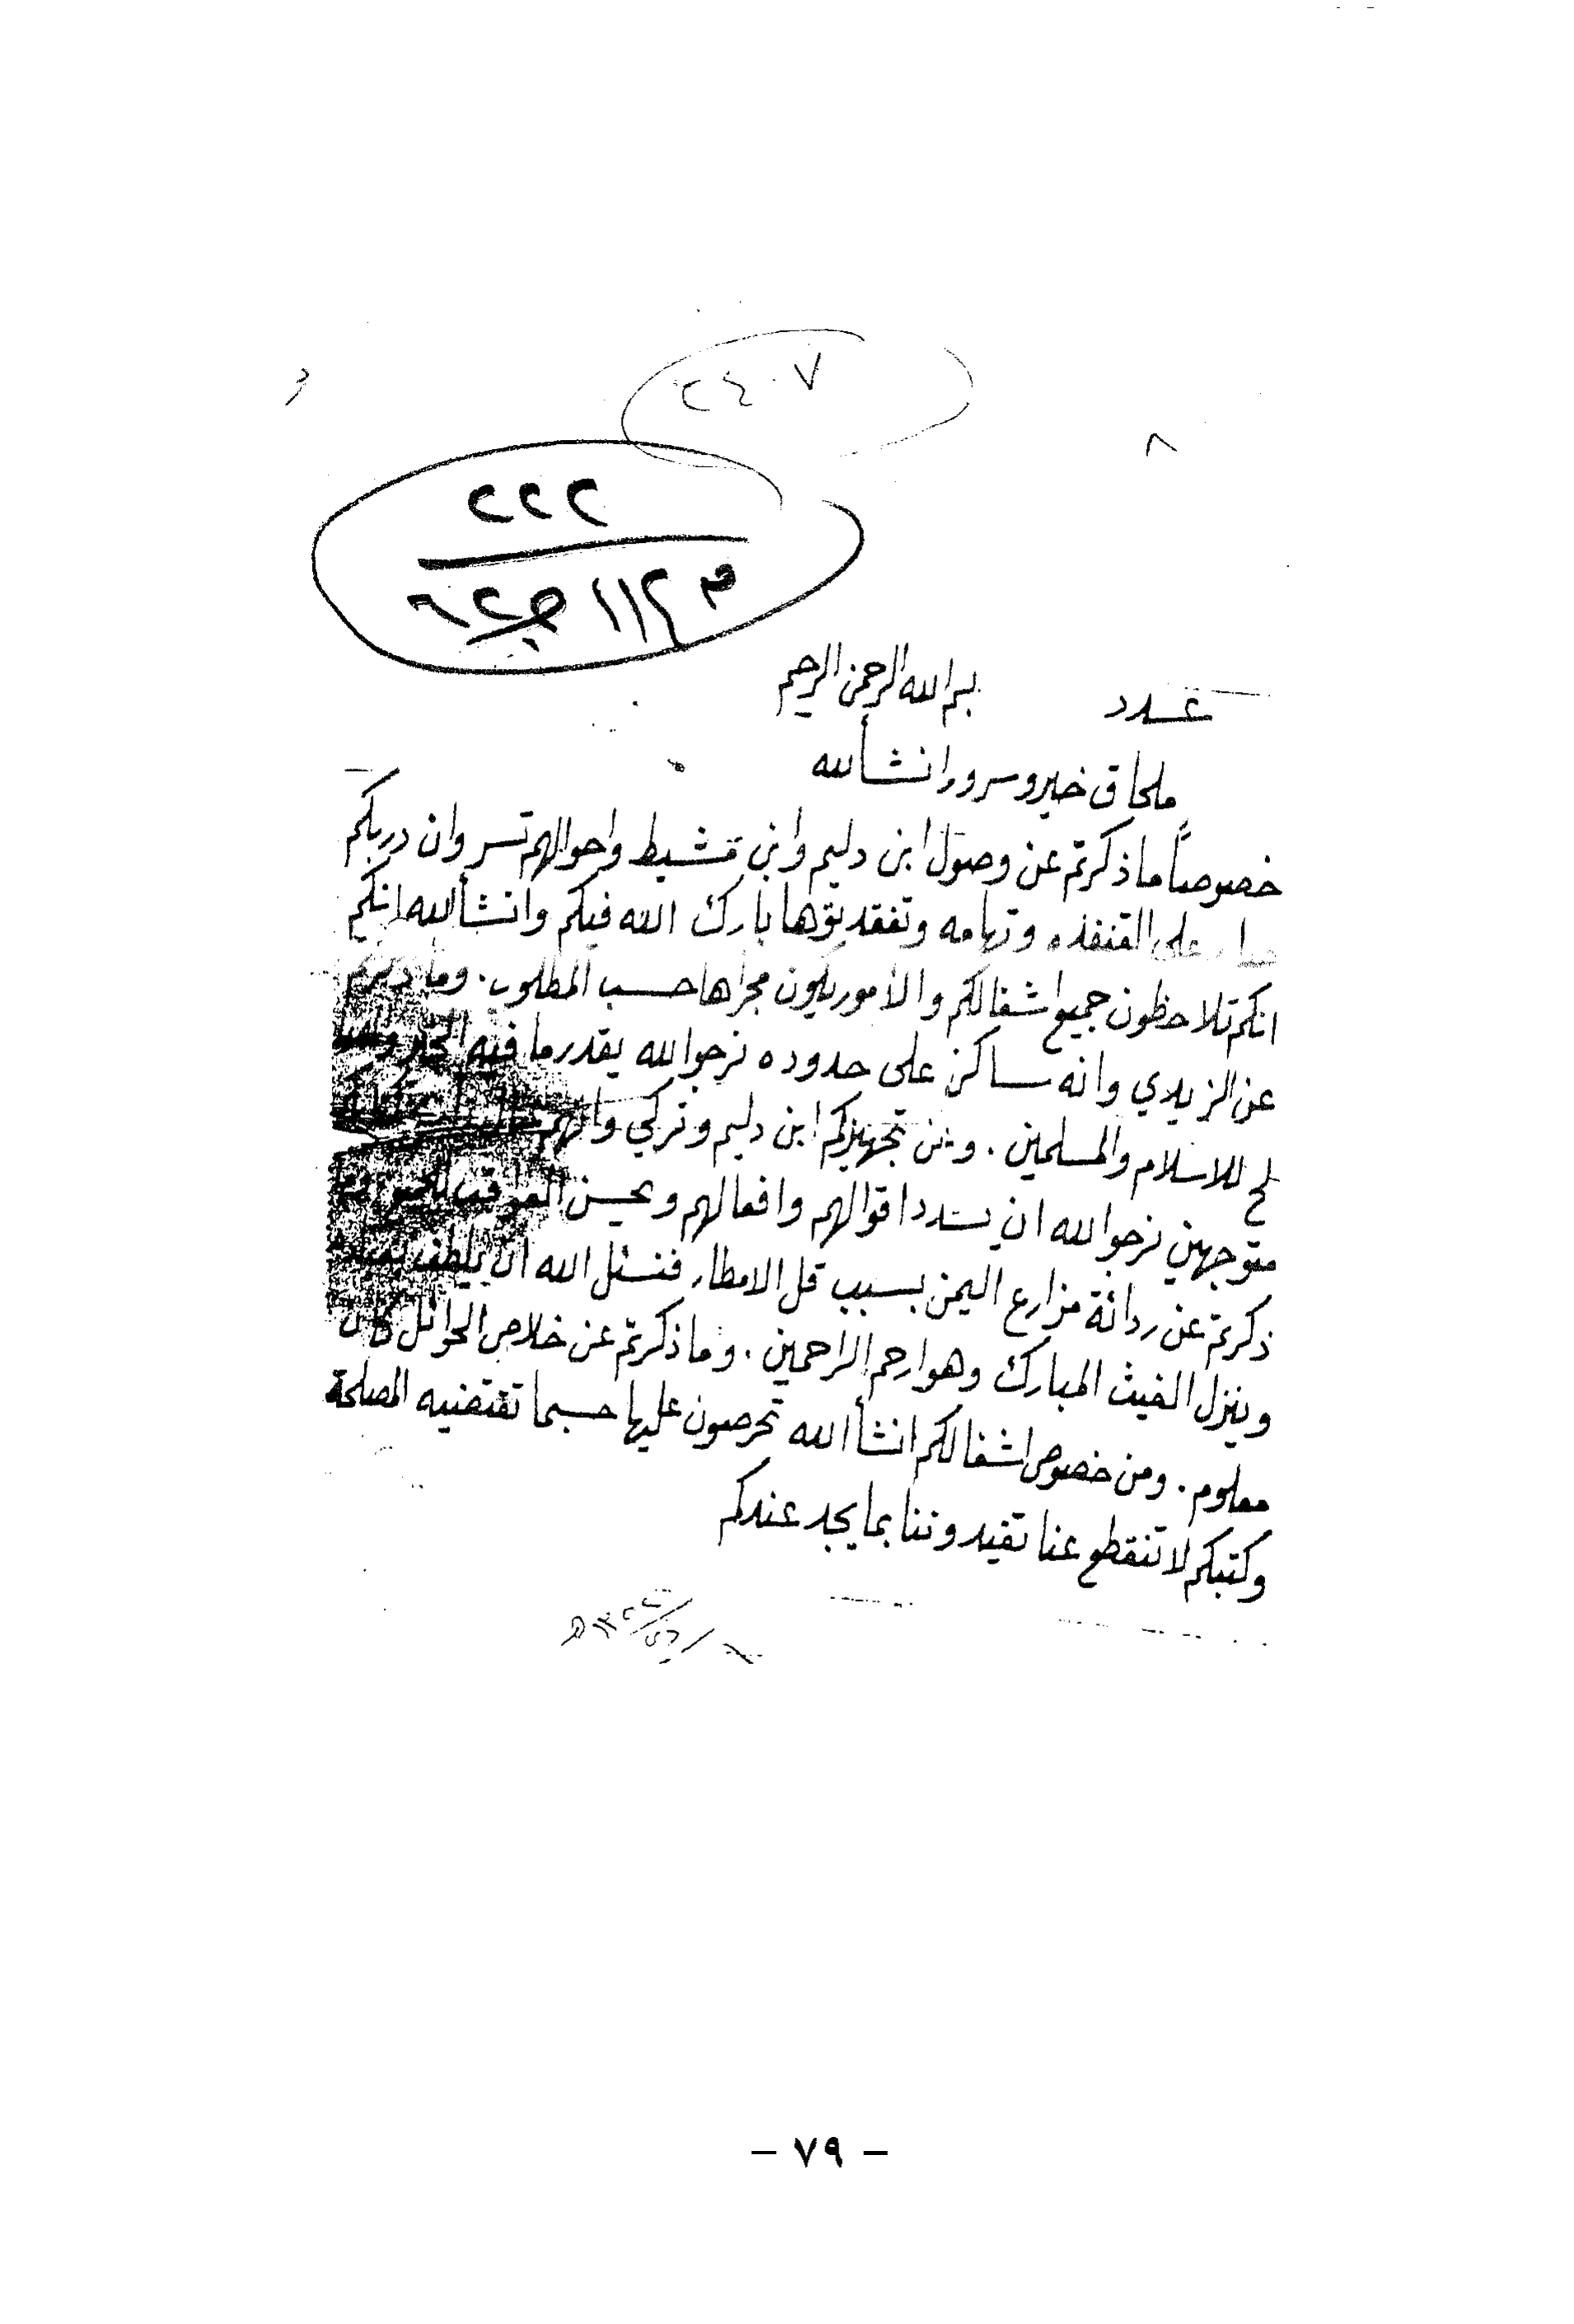 ٢٤٠٧
٨
٢٢٢
عدد
بسم الله الرحمن الرحيم
ملحاق خير وسرور انشألله
خصوصاً ما ذكرتم عن وصول ابن دليم وابن مشيط واحوالهم تسر وان دربكم
على القنفذه وتهامه وتفقديتوها بارك الله فيكم وانشألله انكم
انكم تلاحظون جميع اشغالكم والأمور يكون مجراها حسب المطلوب . وما ذكرتم
عن الزيدي وانه ساكن على حدوده نرجوا الله يقدر ما فيه الخير
للاسلام والمسلمين . ومن تجهيزكم ابن دليم وتركي وانهم
متوجهين نرجوا الله ان يسدد اقوالهم وافعالهم ويحسن العواقب للجميع وما
ذكرتم عن ردائة مزارع اليمن بسبب قل الامطار فنسئل الله ان يلطف بعباده
وينزل الغيث المبارك وهو ارحم الراحمين . وما ذكرتم عن خلاص الحوائل كان
معلوم . ومن خصوص اشغالكم انشأ الله تحرصون عليها حسبما تقتضيه المصلحة
وكتبكم لا تنقطع عنا تفيدوننا بما يجد عندكم
– ٧٩ –